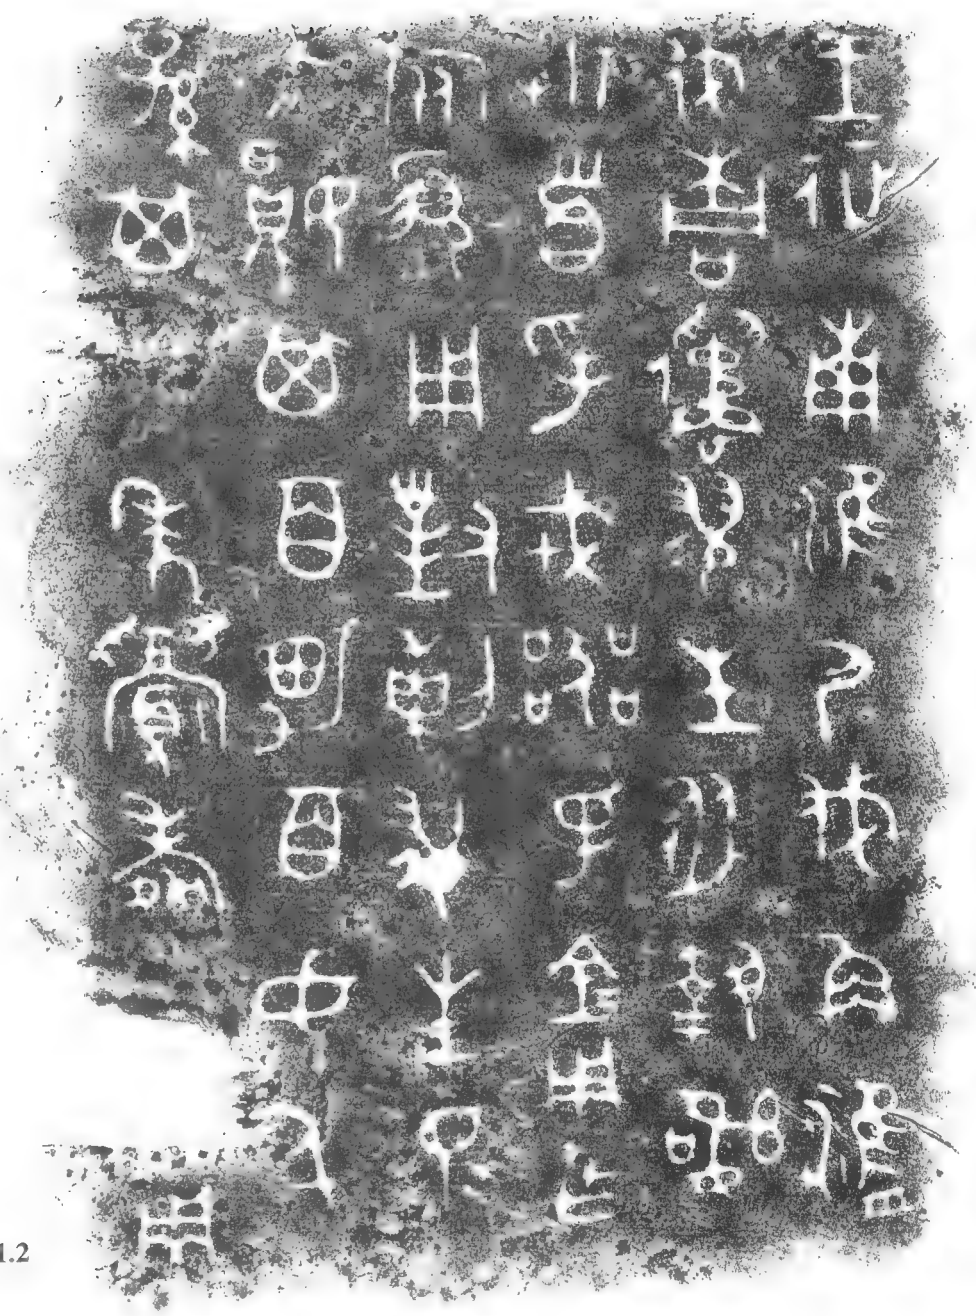 王征南淮尸伐角津
伐桐遹翏生從執訊
折首孚戎器孚金用乍
旅盨用對剌翏生眔
大妘其百男百女千
孫其萬年眉壽永寶用